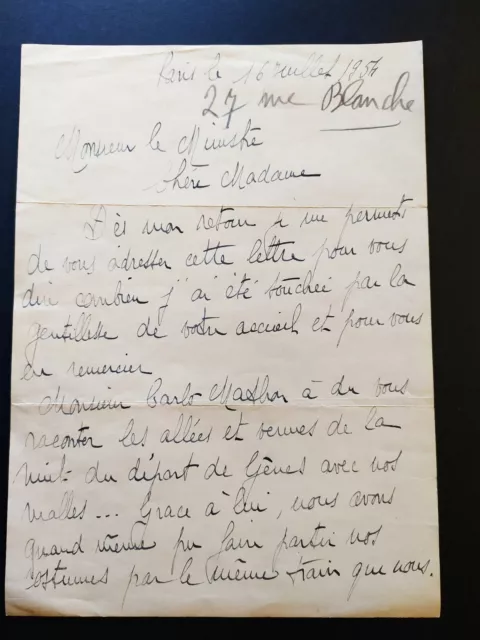 Paris le 16 Juillet 1954
27 rue Blanche
Monsieur le Ministre
Chère Madame
Dès mon retour je me permets
de vous adresser cette lettre pour vous
dire combien j'ai été touchée par la
gentillesse de votre accueil et pour vous
en remercier
Monsieur Carlo Mathon à du vous
raconter les allées et venues de la
nuit du départ de Gênes avec nos
malles... Grace à lui, nous avons
quand même pu faire partir nos
costumes par le même train que nous.